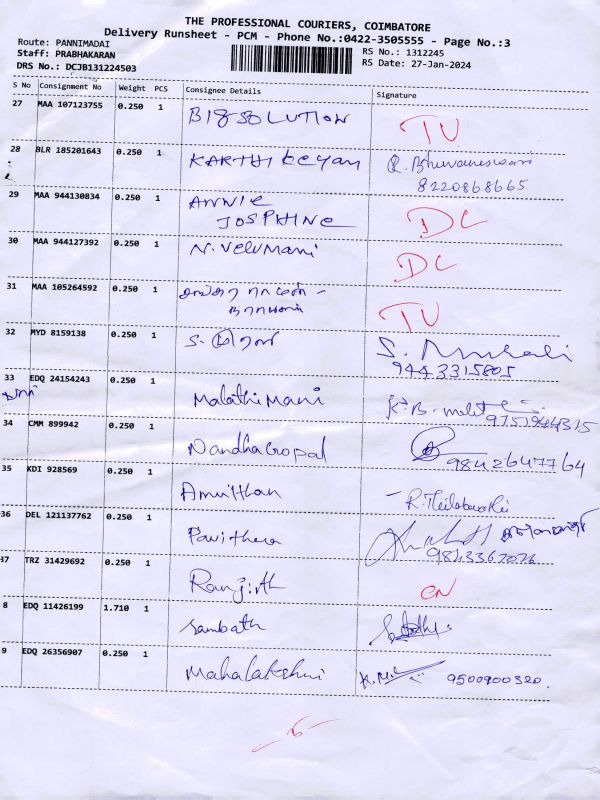 THE PROFESSIONAL COURIERS, COIMBATORE
Delivery Runsheet - PCM - Phone No.:0422-3505555 - Page No.:3
Route: PANNIMADAI
Staff: PRABHAKARAN
DRS No.: DCJB131224503
RS No.: 1312245
RS Date: 27-Jan-2024
S No Consignment No Weight PCS Consignee Details Signature
27 MAA 107123755 0.250 1 BIGSOLUTION TU
28 BLR 185201643 0.250 1 KARTHIKEYAN R. Bhuvaneswari
8220868665
29 MAA 944130834 0.250 1 ANNIE
JOSPHINE DC
30 MAA 944127392 0.250 1 N. VELUMANI DC
31 MAA 105264592 0.250 1 TU
32 MYD 8159138 0.250 1 S. Murali
9443315805
33 EDQ 24154243 0.250 1 Malathi Mani 9751944315
34 CMM 899942 0.250 1 NandhaGopal 9842647764
35 KDI 928569 0.250 1
36 DEL 121137762 0.250 1 Pavithera
37 TRZ 31429692 0.250 1 Ranjith CN
8 EDQ 11426199 1.710 1 Sambath
9 EDQ 26356907 0.250 1 Mahalakshmi 9500900320